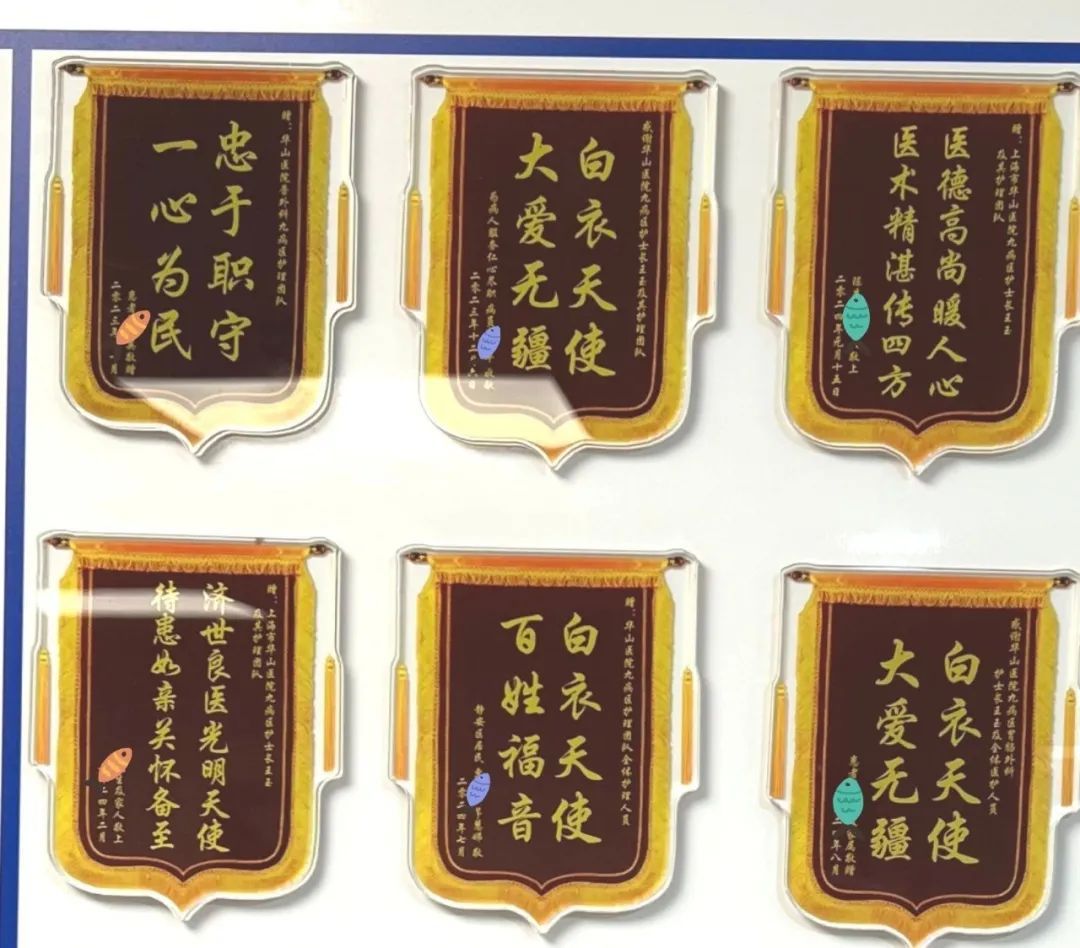 赠：华山医院普外科九病区护理团队
忠于职守
一心为民
患者
敬赠
二零二三年
月
感谢华山医院九病区护士长王玉及其护理团队
白衣天使
大爱无疆
为病人服务仁心尽职
敬献
二零二三年十二
六日
赠：上海市华山医院九病区护士长王玉
及其护理团队
医德高尚暖人心
医术精湛传四方
敬上
二零二四年元月十五日
赠：上海市华山医院九病区护士长王玉
及其护理团队
济世良医光明天使
待患如亲关怀备至
及家人敬上
二四年二月
赠：华山医院九病区护理团队全体护理人员
白衣天使
百姓福音
静安区居民
敬
二零二四年七月
感谢华山医院九病区胃肠外科
护士长王玉及全体医护人员
白衣天使
大爱无疆
患者
家属敬赠
年八月